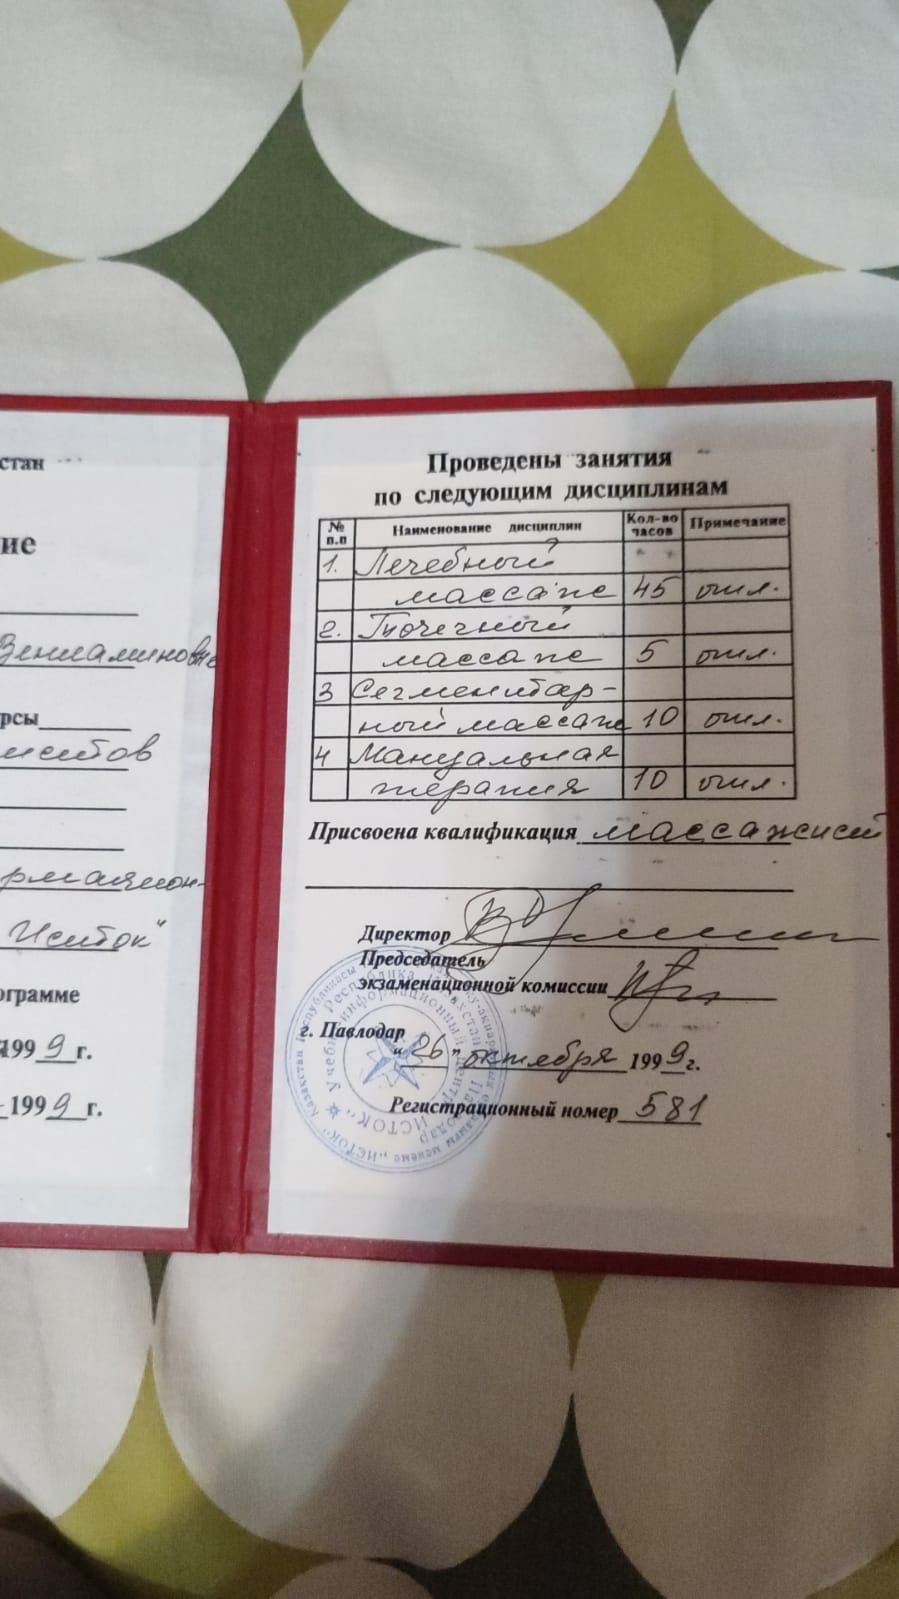 стан
ие
Вениаминовне
рсы
истов
рмацион-
Исток"
ограмме
1999 г.
1999 г.
Проведены занятия
по следующим дисциплинам
№ п.п Наименование дисциплин Кол-во часов Примечание
1. Лечебный
массаж 45 отл.
2. Точечный
массаж 5 отл.
3 Сегментар-
ный массаж 10 отл.
4 Мануальная
терапия 10 отл.
Присвоена квалификация массажист
Директор
Председатель
экзаменационной комиссии
г. Павлодар
"26" октября 1999 г.
Регистрационный номер 581
Қазақстан Республикасы
Республика Казахстан
Учебно-информационный центр
"ИСТОК"